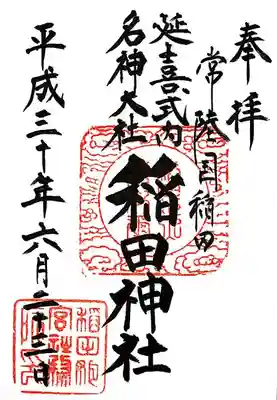 奉拝
常陸国稲田
延喜式内
名神大社
稲田神社
平成三十年六月二十三日